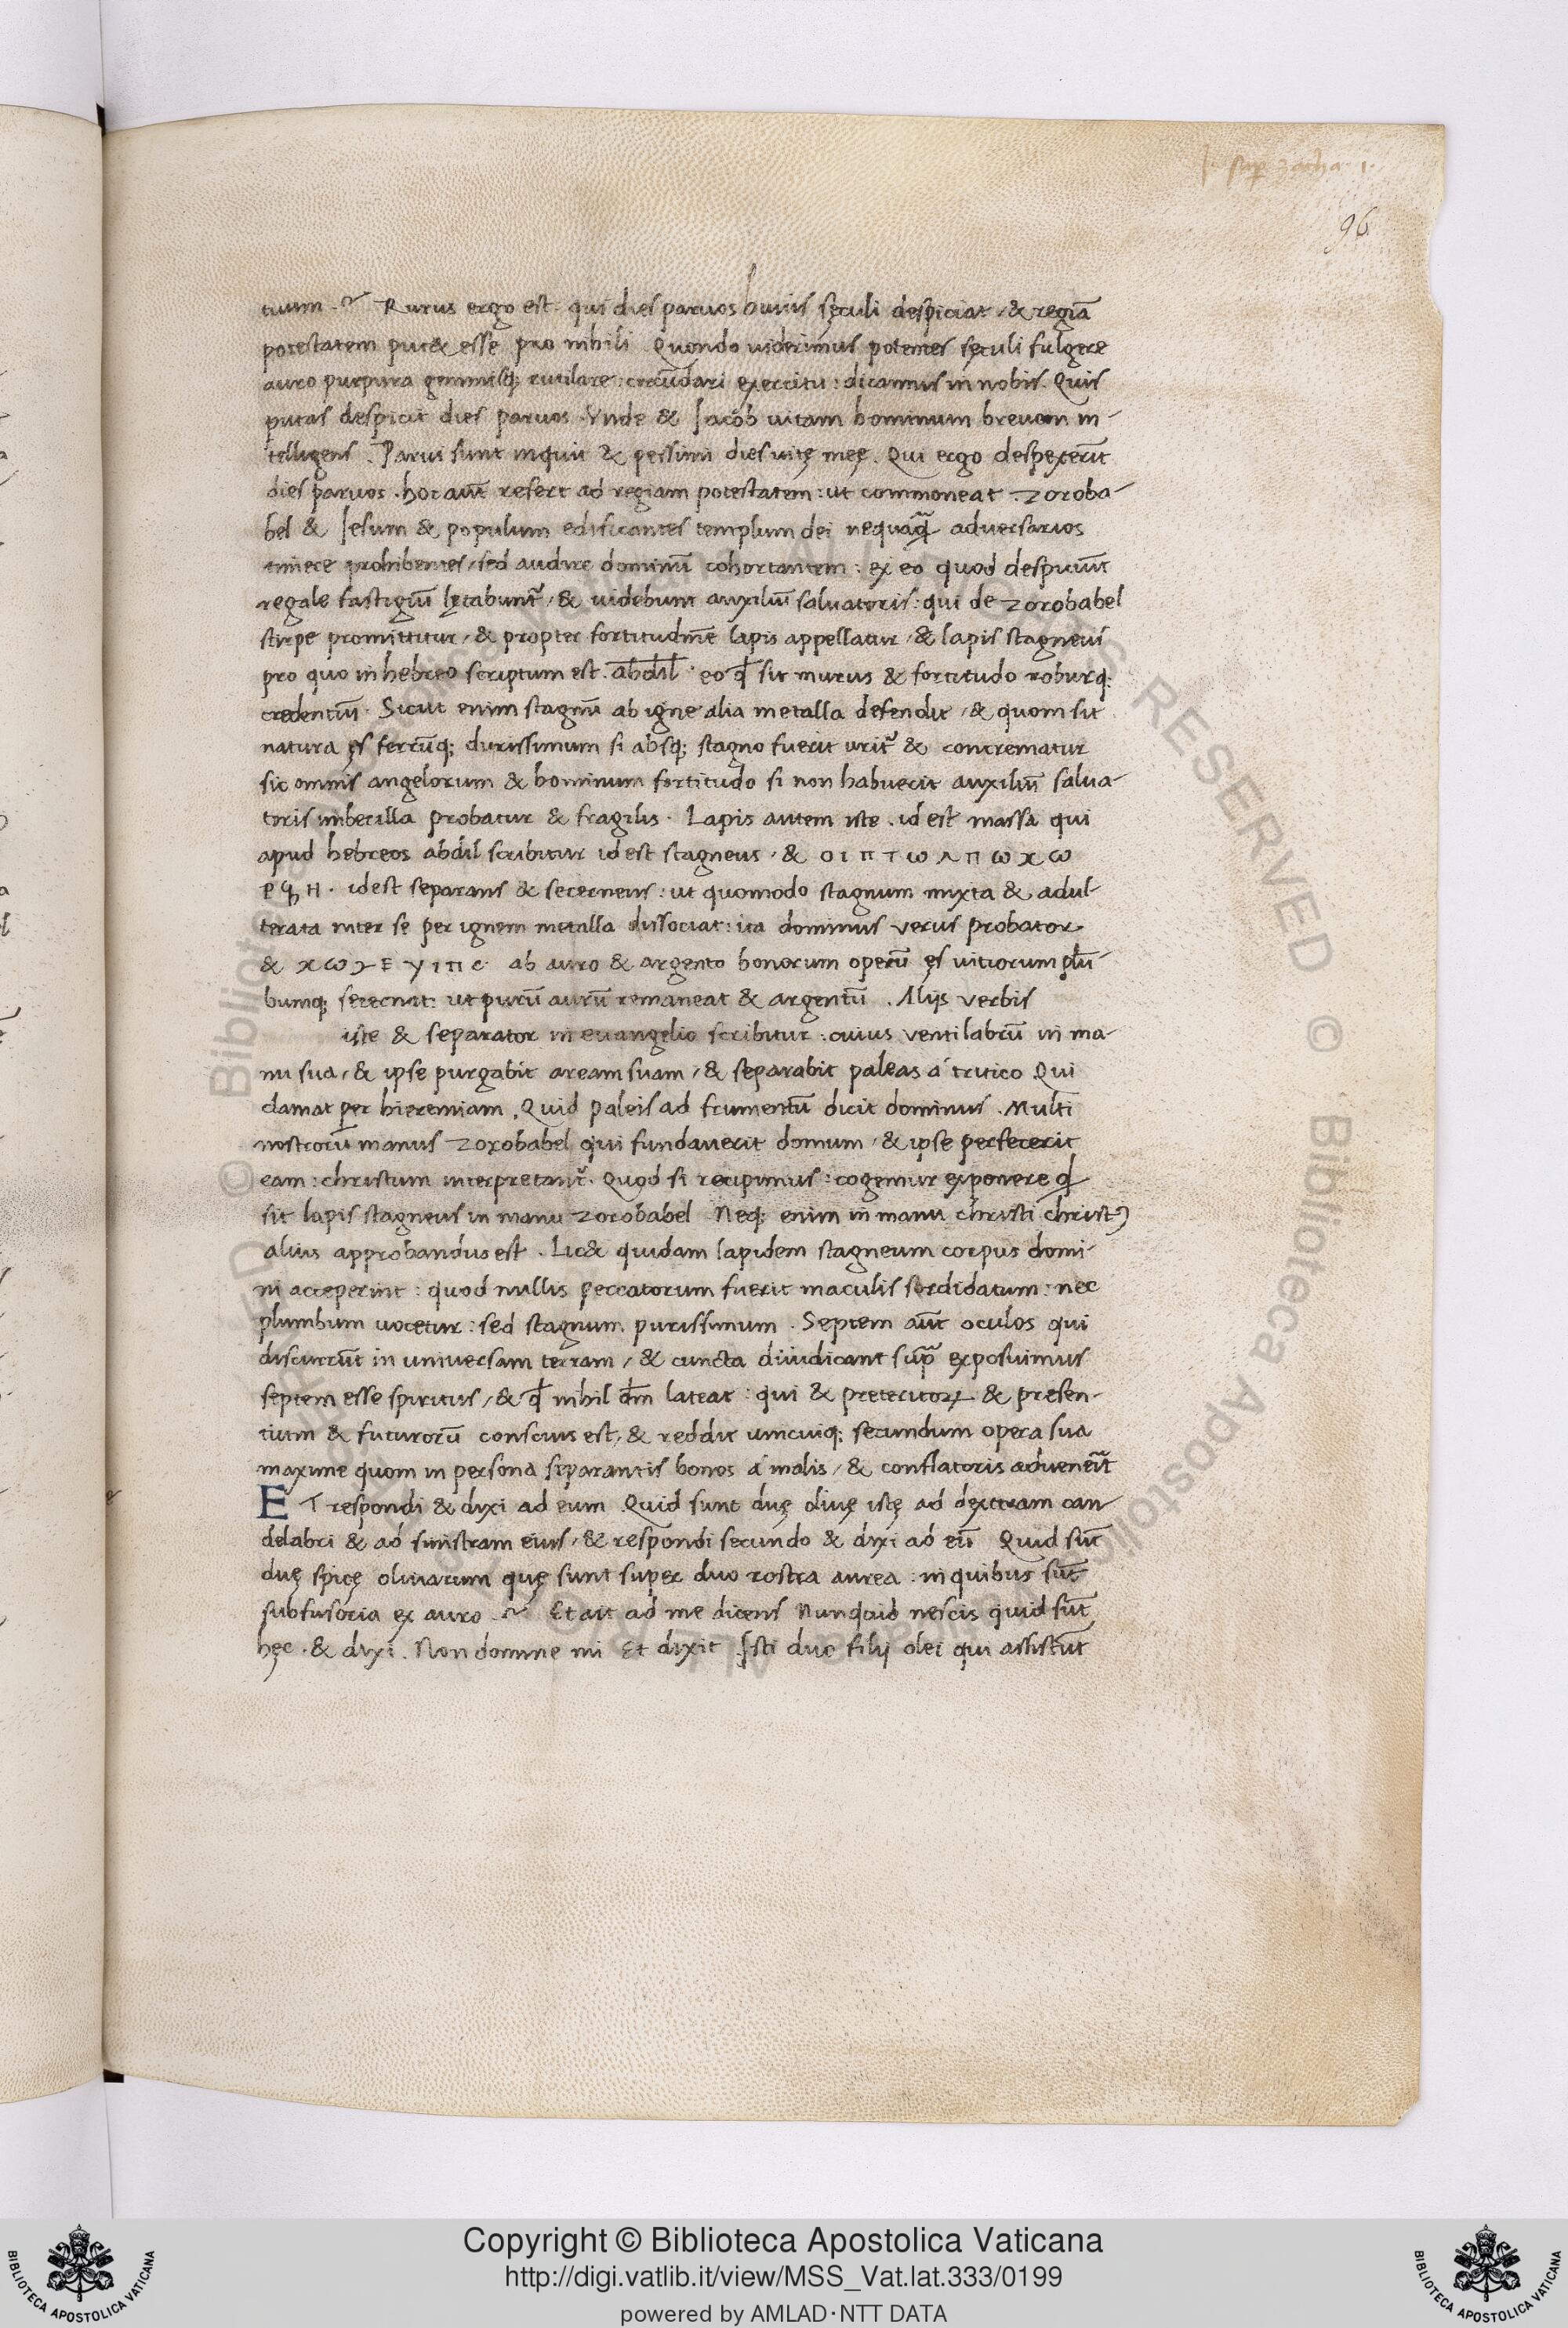 I. sup zacha. 1.
96
tium. Rurus ergo est qui dies paruos huius sęculi despiciat, & regiā
potestatem put& esse pro nihili Quondo uiderimus potentes sęculi fulgere
auro purpura gemmisq; rutilare: circūdari exercitu: dicamus in nobis. Quis
putas despicit dies paruos. Vnde & Jacób uitam hominum breuem in-
telligens. Parui sunt inquit & pessimi dies uitę meę. Qui ergo despexerūt
dies paruos. hoc aūt refert ad regiam potestatem: ut commoneat Zoroba-
bel & Jesum & populum edificantes templum dei nequaq̄ aduersarios
timere prohibentes, sed audire dominū cohortantem: ex eo quod despiciūt
regale fastigiū lętabunt̃, & uidebunt auxiliū saluatoris: qui de Zorobabel
stirpe promittitur, & propter fortitudinē lapis appellatur, & lapis stagneus
pro quo in hebreo scriptum est. abdil. eo q̄ sit murus & fortitudo roburq;
credentiū. Sicut enim stagnū ab igne alia metalla defendit, & quom sit
natura ęs ferrūq; durissimum si absq; stagno fuerit urit̃ & concrematur
sic omnis angelorum & hominum fortitudo si non habuerit auxiliū salua-
toris imbecilla probatur & fragilis. Lapis autem iste. id est massa qui
apud hebreos abdil scribitur id est stagneus. & ο ι π τ ω λ π ω χ ω
ρ ϥ Η. id est separans & secernens: ut quomodo stagnum mixta & adul-
terata inter se per ignem metalla dissociat: ita dominus verus probator
& ab auro & argento bonorum operū ęs uitiorum plū-
bumq; secernat: ut purū aurū remaneat & argentū. Alijs verbis
iste & separator in euangelio scribitur: cuius ventilabrū in ma-
nu sua, & ipse purgabit aream suam, & separabit paleas á tritico Qui
clamat per hieremiam. Quid paleis ad frumentū dicit dominus. Multi
nostrorū manus Zorobabel qui fundauerit domum, & ipse perfecerit
eam: christum interpretant̃. Quod si recipimus: cogemur exponere q̄
sit lapis stagneus in manu Zorobabel Neq; enim in manu christi christꝰ
alius approbandus est. Lic& quidam lapidem stagneum corpus domi-
ni acceperint: quod nullis peccatorum fuerit maculis sordidatum: nec
plumbum uocetur: sed stagnum purissimum. Septem aūt oculos qui
discurrūt in universam terram, & cuncta diiudicant sup̄ exposuimus
septem esse spiritus, & q̄ nihil dm̄ lateat: qui & preteritoꝝ & presen-
tium & futurorū conscius est, & reddit unicuiq; secundum opera sua
maxime quom in persona separantis bonos á malis, & conflatoris adueneīt
ET respondi & dixi ad eum Quid sunt duę oliuę istę ad dexteram can
delabri & ad sinistram eius, & respondi secundo & dixi ad eū Quid sūt
duę spicę oliuarum quę sunt super duo rostra aurea: in quibus sūt
subfusoria ex auro. Et ait ad me dicens Nunquid nescis quid sūt
hęc. & dixi. Non domine mi Et dixit Jsti duo filij olei qui assistūt
Copyright © Biblioteca Apostolica Vaticana
http://digi.vatlib.it/view/MSS_Vat.lat.333/0199
powered by AMLAD·NTT DATA